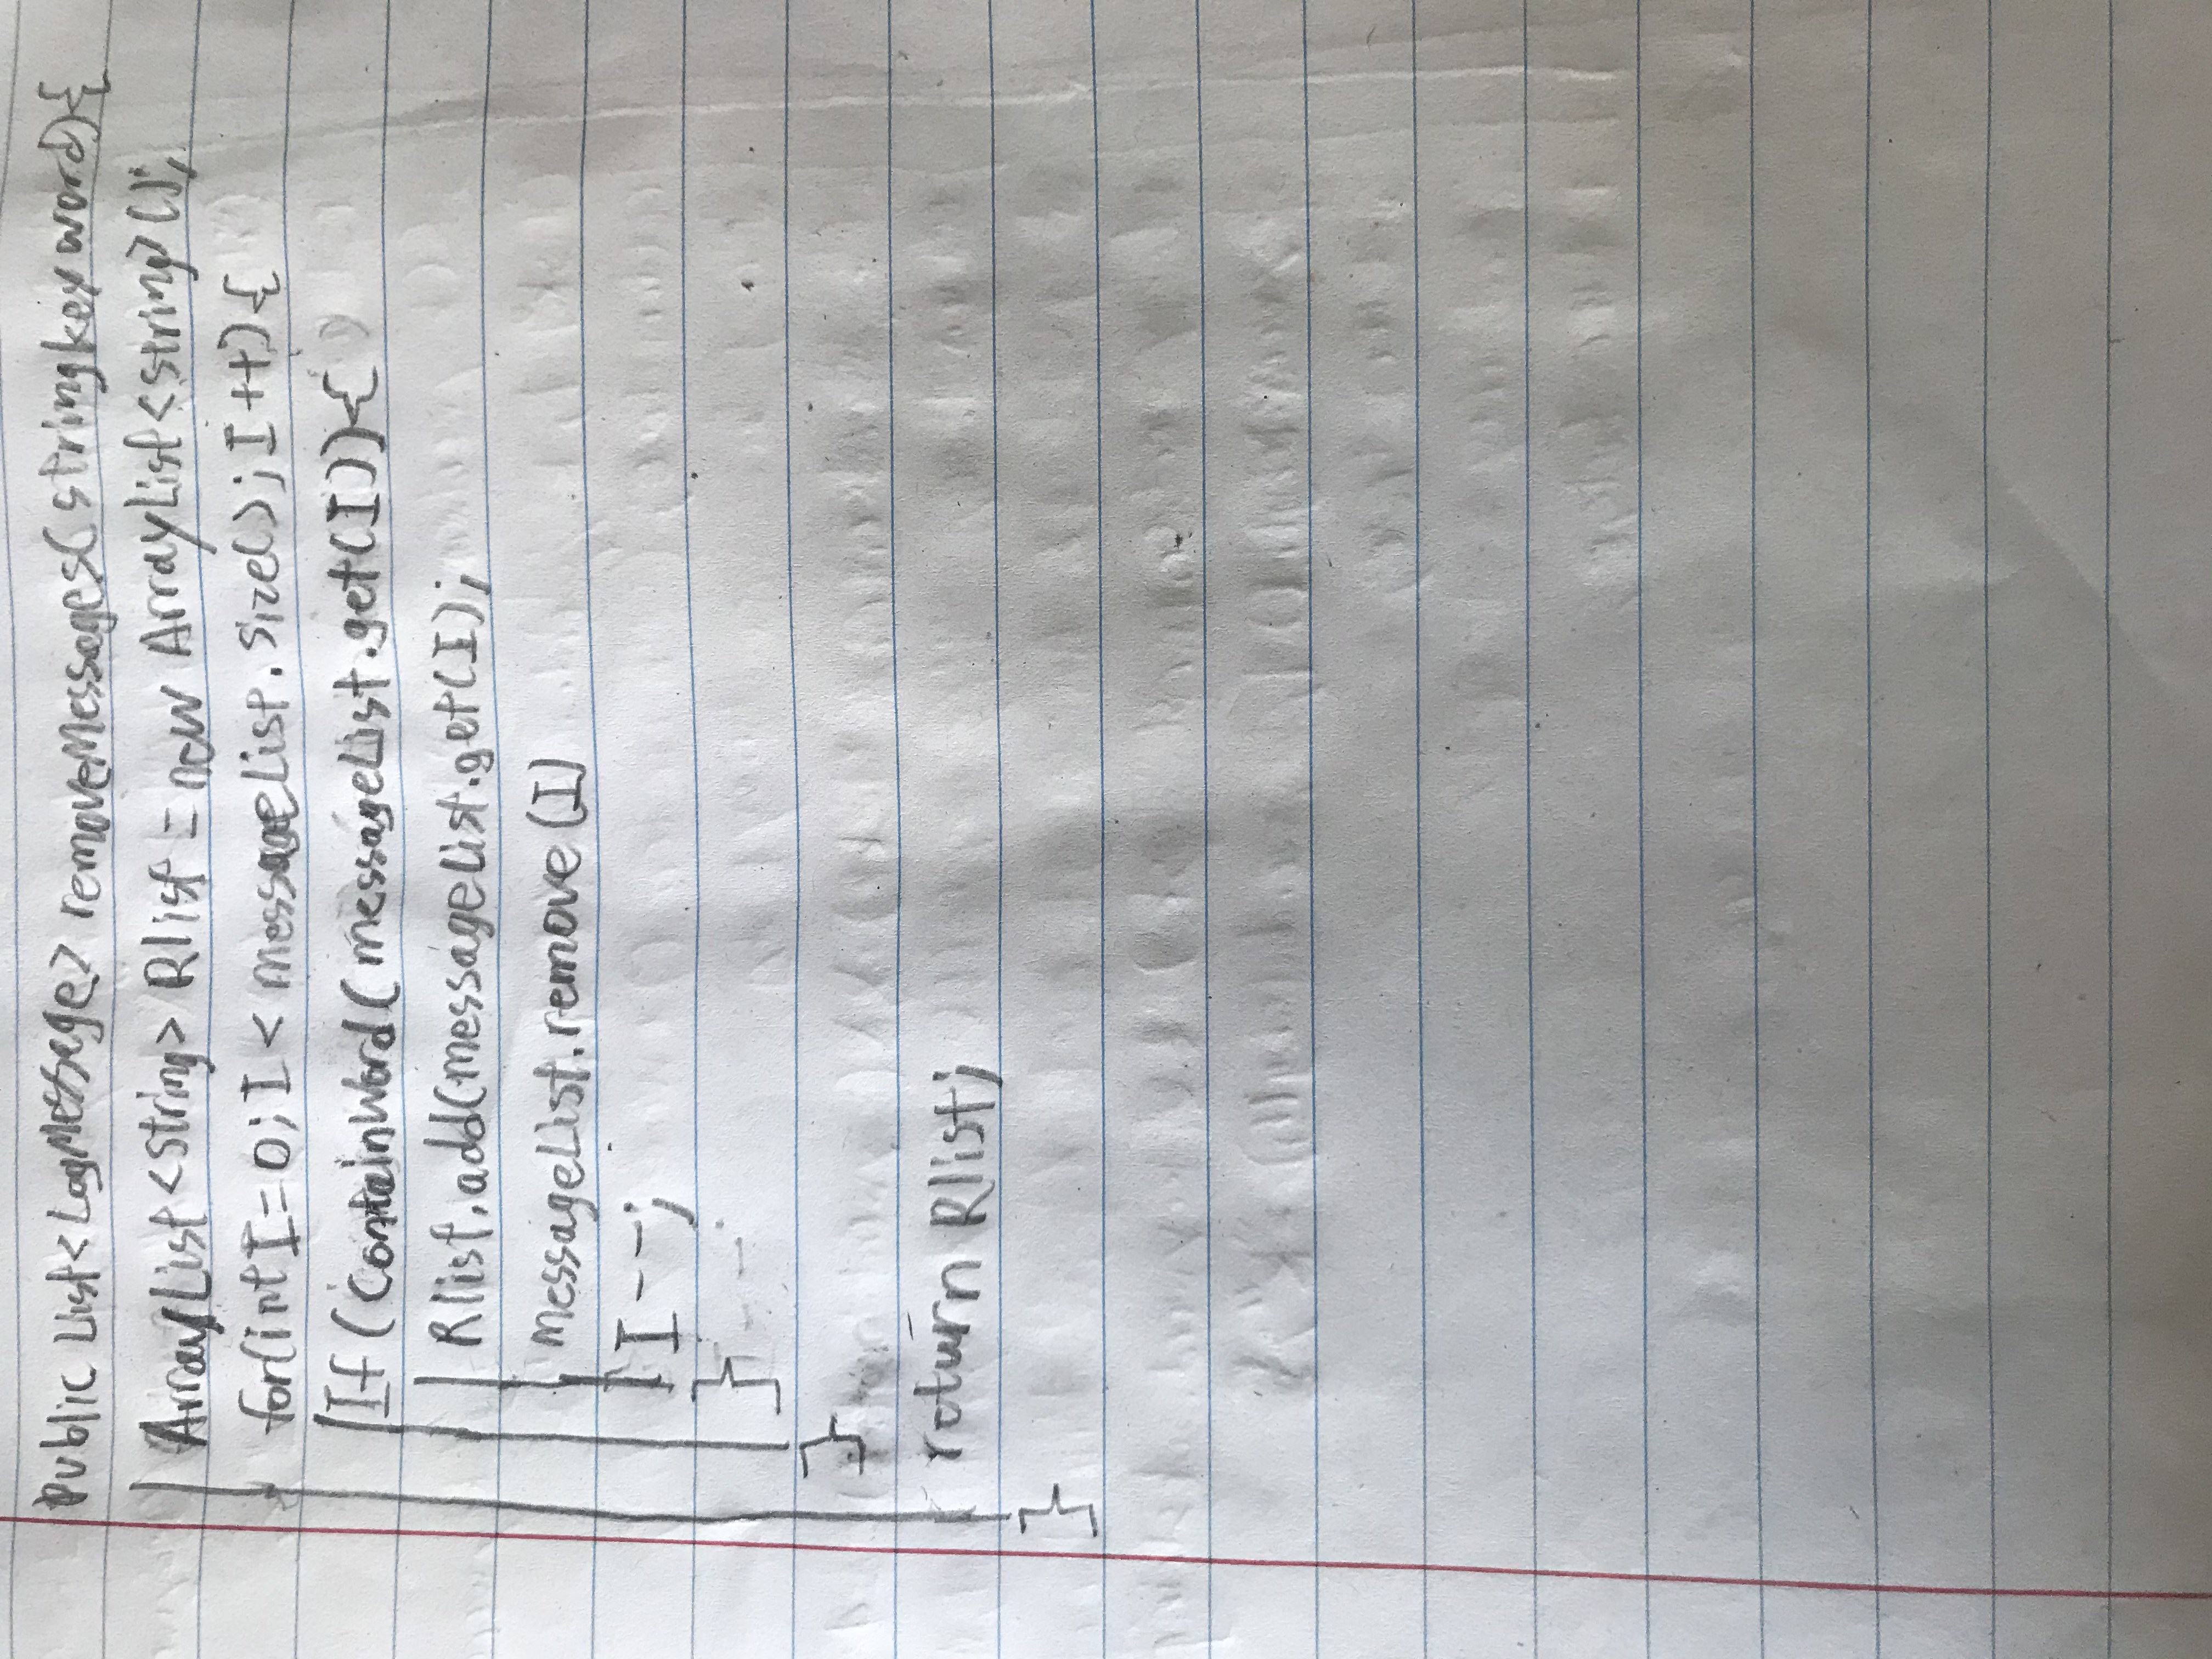 Public List<LogMessage> removeMessages(string keyword){
ArrayList<String> Rlist = new ArrayList<string>();
for(int I=0; I < messageList.size(); I++){
If (containWord(messageList.get(I)){
Rlist.add(messageList.get(I);
messageList.remove(I)
I--;
}
}
return Rlist;
}